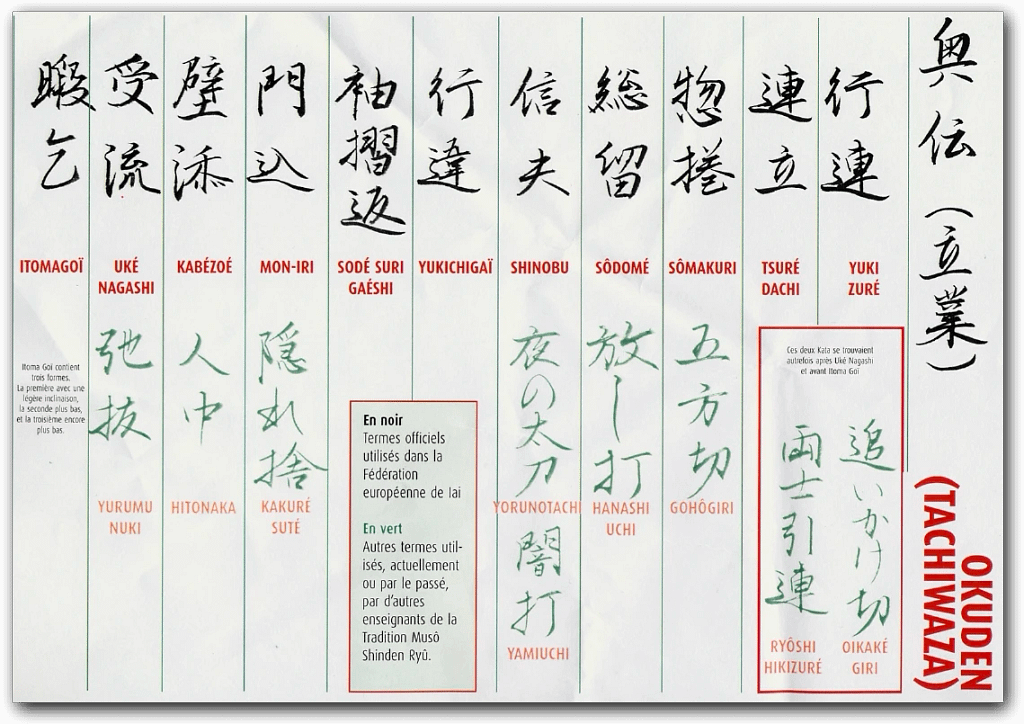 奥伝（立業）
OKUDEN
(TACHIWAZA)
行連
YUKI
ZURÉ
連立
TSURÉ
DACHI
Ces deux Kata se trouvaient
autrefois après Uké Nagashi
et avant Itoma Goï
追いかけ切
OIKAKÉ
GIRI
両士引連
RYÔSHI
HIKIZURÉ
惣捲
SÔMAKURI
五方切
GOHÔGIRI
総留
SÔDOMÉ
放し打
HANASHI
UCHI
信夫
SHINOBU
夜の太刀
YORUNOTACHI
闇打
YAMIUCHI
行違
YUKICHIGAÏ
袖摺返
SODÉ SURI
GAÉSHI
En noir
Termes officiels
utilisés dans la
Fédération
européenne de Iai
En vert
Autres termes util-
isés, actuellement
ou par le passé,
par d'autres
enseignants de la
Tradition Musô
Shinden Ryû.
門込
MON-IRI
隠れ捨
KAKURÉ
SUTÉ
壁添
KABÉZOÉ
人中
HITONAKA
受流
UKÉ
NAGASHI
弛抜
YURUMU
NUKI
暇乞
ITOMAGOÏ
Itoma Goï contient
trois formes.
La première avec une
légère inclinaison,
la seconde plus bas,
et la troisième encore
plus bas.